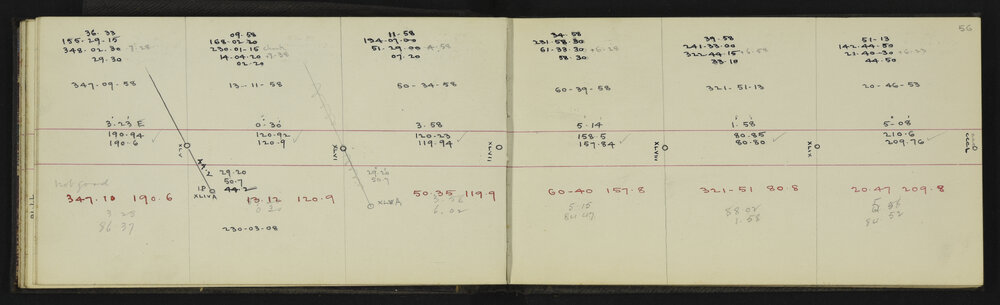 56
36.33
155-29-15
348-02-30
29.30
347-09-58
3.23 E
190.94
190.6
XLV
not good
347.10 190.6
3 23
86 37
09.58
168-02-20
230-01-15
14-04-20
02-20
13-11-58
0.30
120.92
120.9
XLVI
29.20
50.7
44.2
IP XLIVA
13.12 120.9
230-03-08
11-58
194-07-00
51-29-00
07.20
50-34-58
3.58
120.23
119.94
XLVII
29.20
50.7
XLVA
50.35 119.9
6.02
34-58
231-58-30
61-33-30 +6-28
58-30
60-39-58
5.14
158.5
157.84
XLVIII
60-40 157.8
5.15
84.47
39-58
241-33-00
322-44-15 +6-58
33-10
321-51-13
1.58
80.85
80.80
XLIX
321-51 80.8
88 02
1.58
51-13
142-44-50
21-40-30 +6-23
44-50
20-46-53
5-08
210.6
209.76
20.47 209.8
84 52